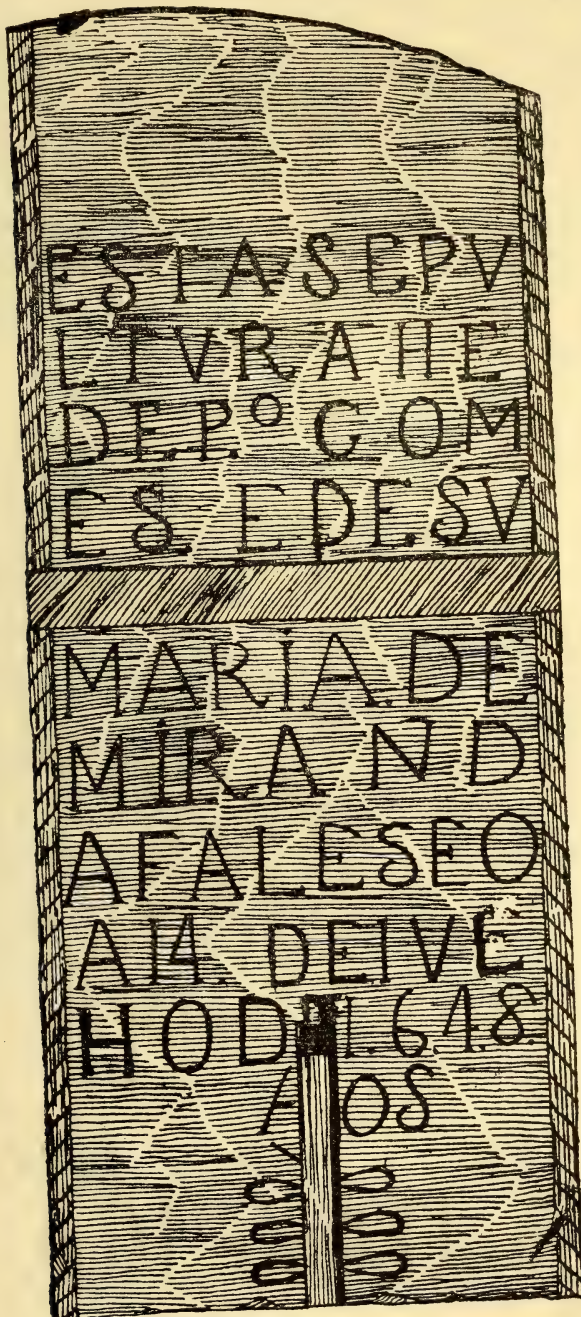 ESTA SEPV
LTVRA HE
DE.P.º GOM
ES E DE SV
MARIA.DE
MIR.AND
AFALESEO
A 14. DEIVE
HOD 1.648.
AOS